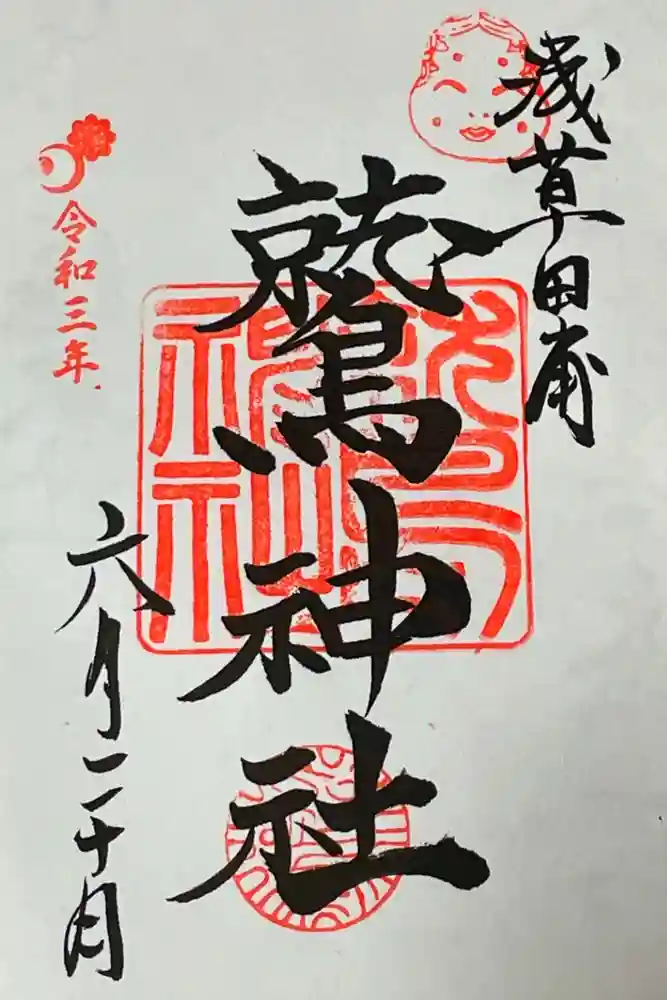 浅草田甫
鷲神社
鷲神社
令和三年
六月二十日